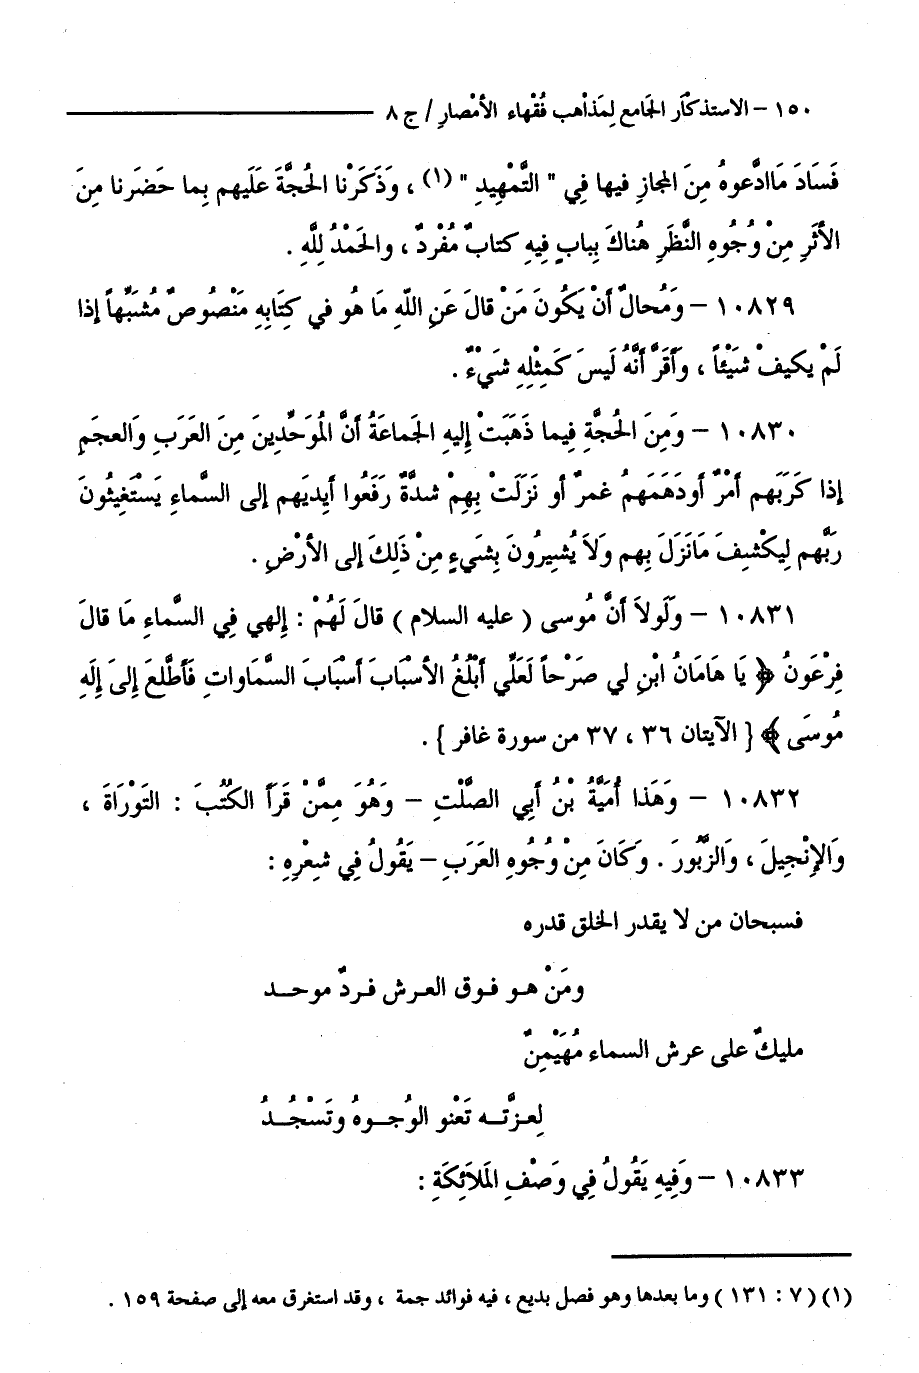 ١٥٠ – الاستذكار الجامع لمَذاهب فُقْهاء الأمْصارِ / ج ٨
فَسَادَ مَاادَّعوهُ مِنَ المجازِ فيها فِي " التَّمْهِيدِ " (١) ، وَذَكَرْنا الحُجَّةَ عَلَيهم بِما حَضَرنا مِنَ
الأثَرِ مِنْ وُجُوهِ النَّظَرِ هُناكَ بِبابٍ فِيهِ كتابٌ مُفْرَدٌ ، والحَمْدُ للَّهِ .
١٠٨٢٩ – وَمُحالٌ أَنْ يَكُونَ مَنْ قالَ عَنِ اللّه مَا هُو في كِتَابِهِ مَنْصُوصٌ مُشَبّهاً إذا
لَمْ يكيفْ شَيْئاً ، وَأَقَرَّ أَنَّهُ لَيسَ كَمِثْلِهِ شَيْءٌ .
١٠٨٣٠ – وَمِنَ الحُجَّةِ فِيما ذَهَبَتْ إِليهِ الجَماعَةُ أَنَّ المُوَحِّدِينَ مِنَ العَرَبِ وَالعجَمِ
إذا كَرَبَهم أَمْرٌ أودَهَمَهمُ غمرٌ أو نَزَلَتْ بِهِمْ شدَّةٌ رَفَعُوا أيديَهم إلى السَّماءِ يَستَغِيثُونَ
رَبَّهم لِيكْشِفَ مَانَزَلَ بِهم وَلاَ يُشيِرُونَ بِشَيءٍ مِنْ ذَلِكَ إلى الأرْضِ .
١٠٨٣١ – وَلَولاَ أَنَّ مُوسى ( عليه السلام ) قالَ لَهُمْ : إِلهي فِي السَّماءِ مَا قالَ
فِرْعَونُ ﴿ يَا هَامَانُ ابْنِ لي صَرْحاً لَعَلِّي أَبْلُغُ الأسْبَابَ أَسْبَابَ السَّمَاوَاتِ فَأَطَّلعَ إلىَ إلَهِ
مُوسَى ﴾ [ الآيتان ٣٦ ، ٣٧ من سورة غافر ] .
١٠٨٣٢ – وَهَذا أُمَيَّةُ بْنُ أَبِي الصَّلْتِ – وَهُوَ مِمَّنْ قَرَأَ الكُتُبَ : التَوْرَاةَ ،
وَالإِنْجيلَ ، وَالزَّبُورَ . وَكَانَ مِنْ وُجُوهِ العَرَبِ – يَقُولُ فِي شِعْرِهِ :
فسبحان من لا يقدر الخلق قدره
ومَنْ هـو فـوق العـرش فـردٌ موحـد
مليكٌ على عرش السماء مُهَيْمِنٌ
لِعـزَّتـه تَعْنو الوُجـوهُ وتَسْجُـدُ
١٠٨٣٣ – وَفِيهِ يَقُولُ فِي وَصْفِ المَلاَئِكَةِ :
(١) (٧ : ١٣١ ) وما بعدها وهو فصل بديع ، فيه فوائد جمة ، وقد استغرق معه إلى صفحة ١٥٩ .